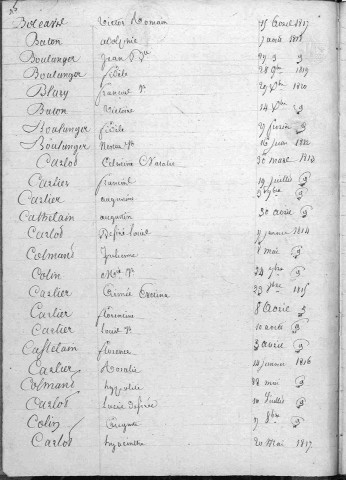 Boleart Victor Romain 25 avril 1817
Baton adolphe 7 août 1818
Boulanger Jean Bte 29 9
Boulanger Fidèle 28 1819
Blary francois Jh 29 Xbre 1820
Baton Victoire 14 Xbre 9
Boulanger fidèle 27 février 9
Boulanger Jh 16 juin 1812
Carlos Célestine Natalie 30 mars 1813
Cartier francois 19 juillet 9
Cartier augustin 9
Cathelain augustin 30 avril 9
Carlos Désiré louis 9 janvier 1814
Colmans Julienne 8 mai 9
Colin Jh 24 9bre 9
Cartier Aimée 23 1815
Cartier florentine 8 avril 9
Carlos louis Jh 10 août 9
Castelain florence 3 avril 9
Cartier Natalie 14 janvier 1816
Colmans hyppolite 22 mai 9
Carlos Lucie désirée 10 juillet 9
Colin 9 8bre 9
Carlos hyacinthe 20 Mai 1817